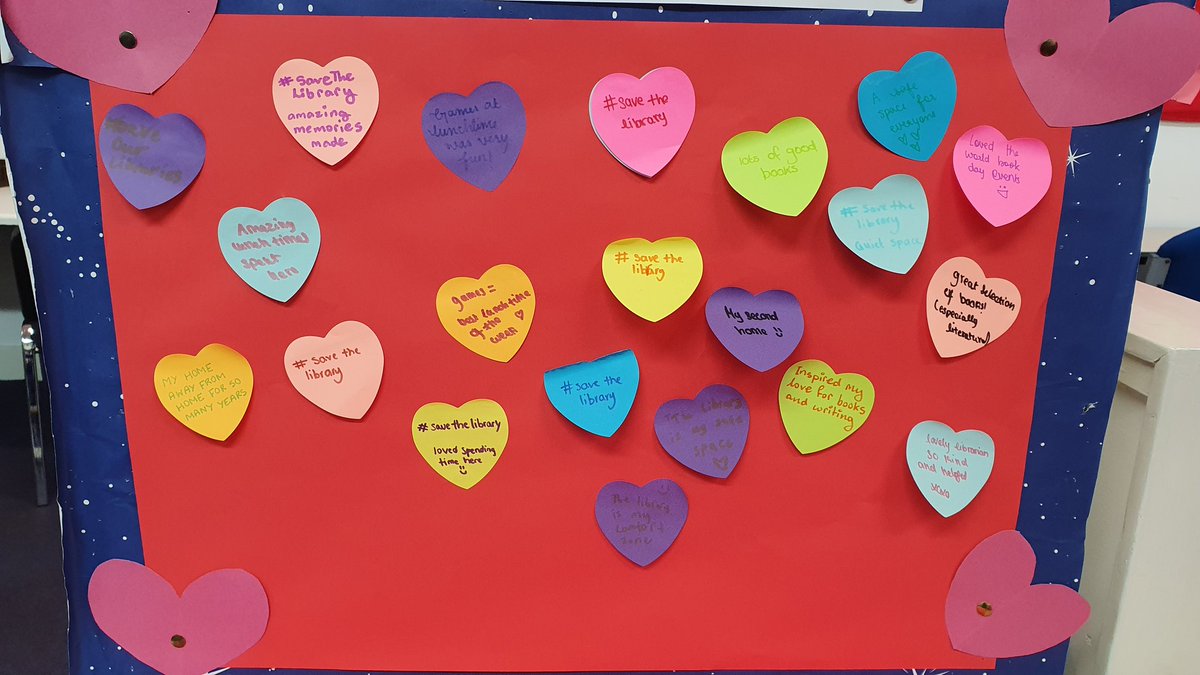 #SaveThe
Library
amazing
memories
made
Games at
lunchtime
was very
fun!
#save the
library
A safe
space for
everyone
lots of good
books
Loved the
world book
day events
Amazing
lunch times
spent
here
#save the
library
Quiet space
#save the
library
games =
best lunchtime
of the
week
My second
home
great selection
of books!
(especially
literature)
MY HOME
AWAY FROM
HOME FOR SO
MANY YEARS
#save the
library
#save the library
loved spending
time here
#save the
library
The library
is my safe
space
Inspired my
love for books
and writing
lovely librarian
so kind
and helpful
The library
is my
comfort
zone